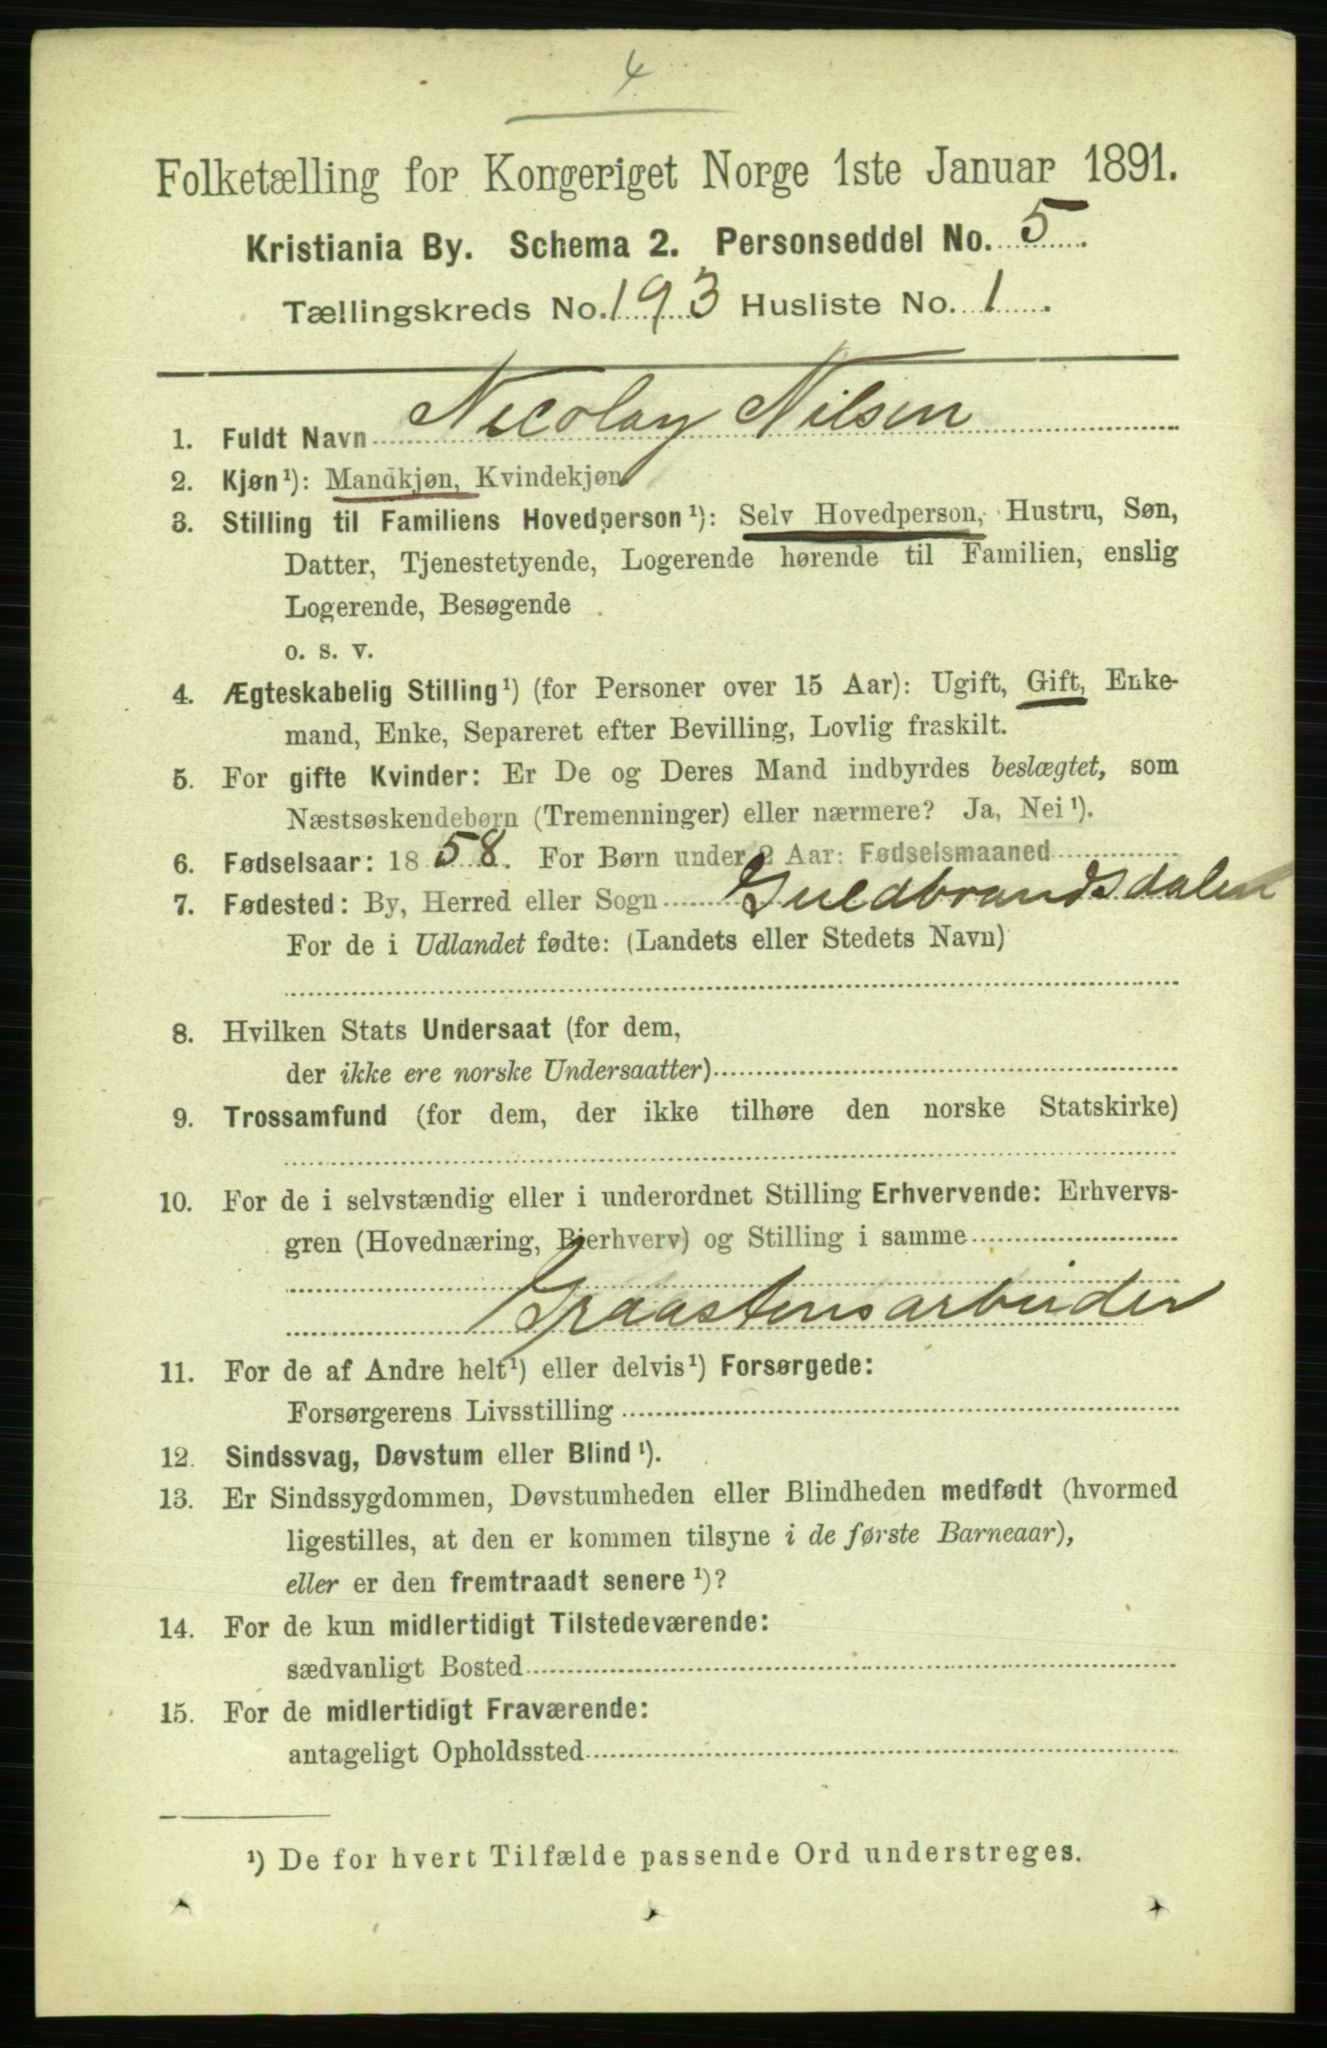 4
Folketælling for Kongeriget Norge 1ste Januar 1891.
Kristiania By. Schema 2. Personseddel No. 5.
Tællingskreds No. 193 Husliste No. 1.
1. Fuldt Navn Nicolay Nilsen
2. Kjøn¹): Mandkjøn, Kvindekjøn
3. Stilling til Familiens Hovedperson¹): Selv Hovedperson, Hustru, Søn,
Datter, Tjenestetyende, Logerende hørende til Familien, enslig
Logerende, Besøgende
o. s. v.
4. Ægteskabelig Stilling¹) (for Personer over 15 Aar): Ugift, Gift, Enke-
mand, Enke, Separeret efter Bevilling, Lovlig fraskilt.
5. For gifte Kvinder: Er De og Deres Mand indbyrdes beslægtet, som
Næstsøskendebørn (Tremenninger) eller nærmere? Ja, Nei¹).
6. Fødselsaar: 1858. For Børn under 2 Aar: Fødselsmaaned
7. Fødested: By, Herred eller Sogn Guldbrandsdalen
For de i Udlandet fødte: (Landets eller Stedets Navn)
8. Hvilken Stats Undersaat (for dem,
der ikke ere norske Undersaatter)
9. Trossamfund (for dem, der ikke tilhøre den norske Statskirke)
10. For de i selvstændig eller i underordnet Stilling Erhvervende: Erhvervs-
gren (Hovednæring, Bierhverv) og Stilling i samme
Graastensarbeider
11. For de af Andre helt¹) eller delvis¹) Forsørgede:
Forsørgerens Livsstilling
12. Sindssvag, Døvstum eller Blind¹).
13. Er Sindssygdommen, Døvstumheden eller Blindheden medfødt (hvormed
ligestilles, at den er kommen tilsyne i de første Barneaar),
eller er den fremtraadt senere¹)?
14. For de kun midlertidigt Tilstedeværende:
sædvanligt Bosted
15. For de midlertidigt Fraværende:
antageligt Opholdssted
¹) De for hvert Tilfælde passende Ord understreges.